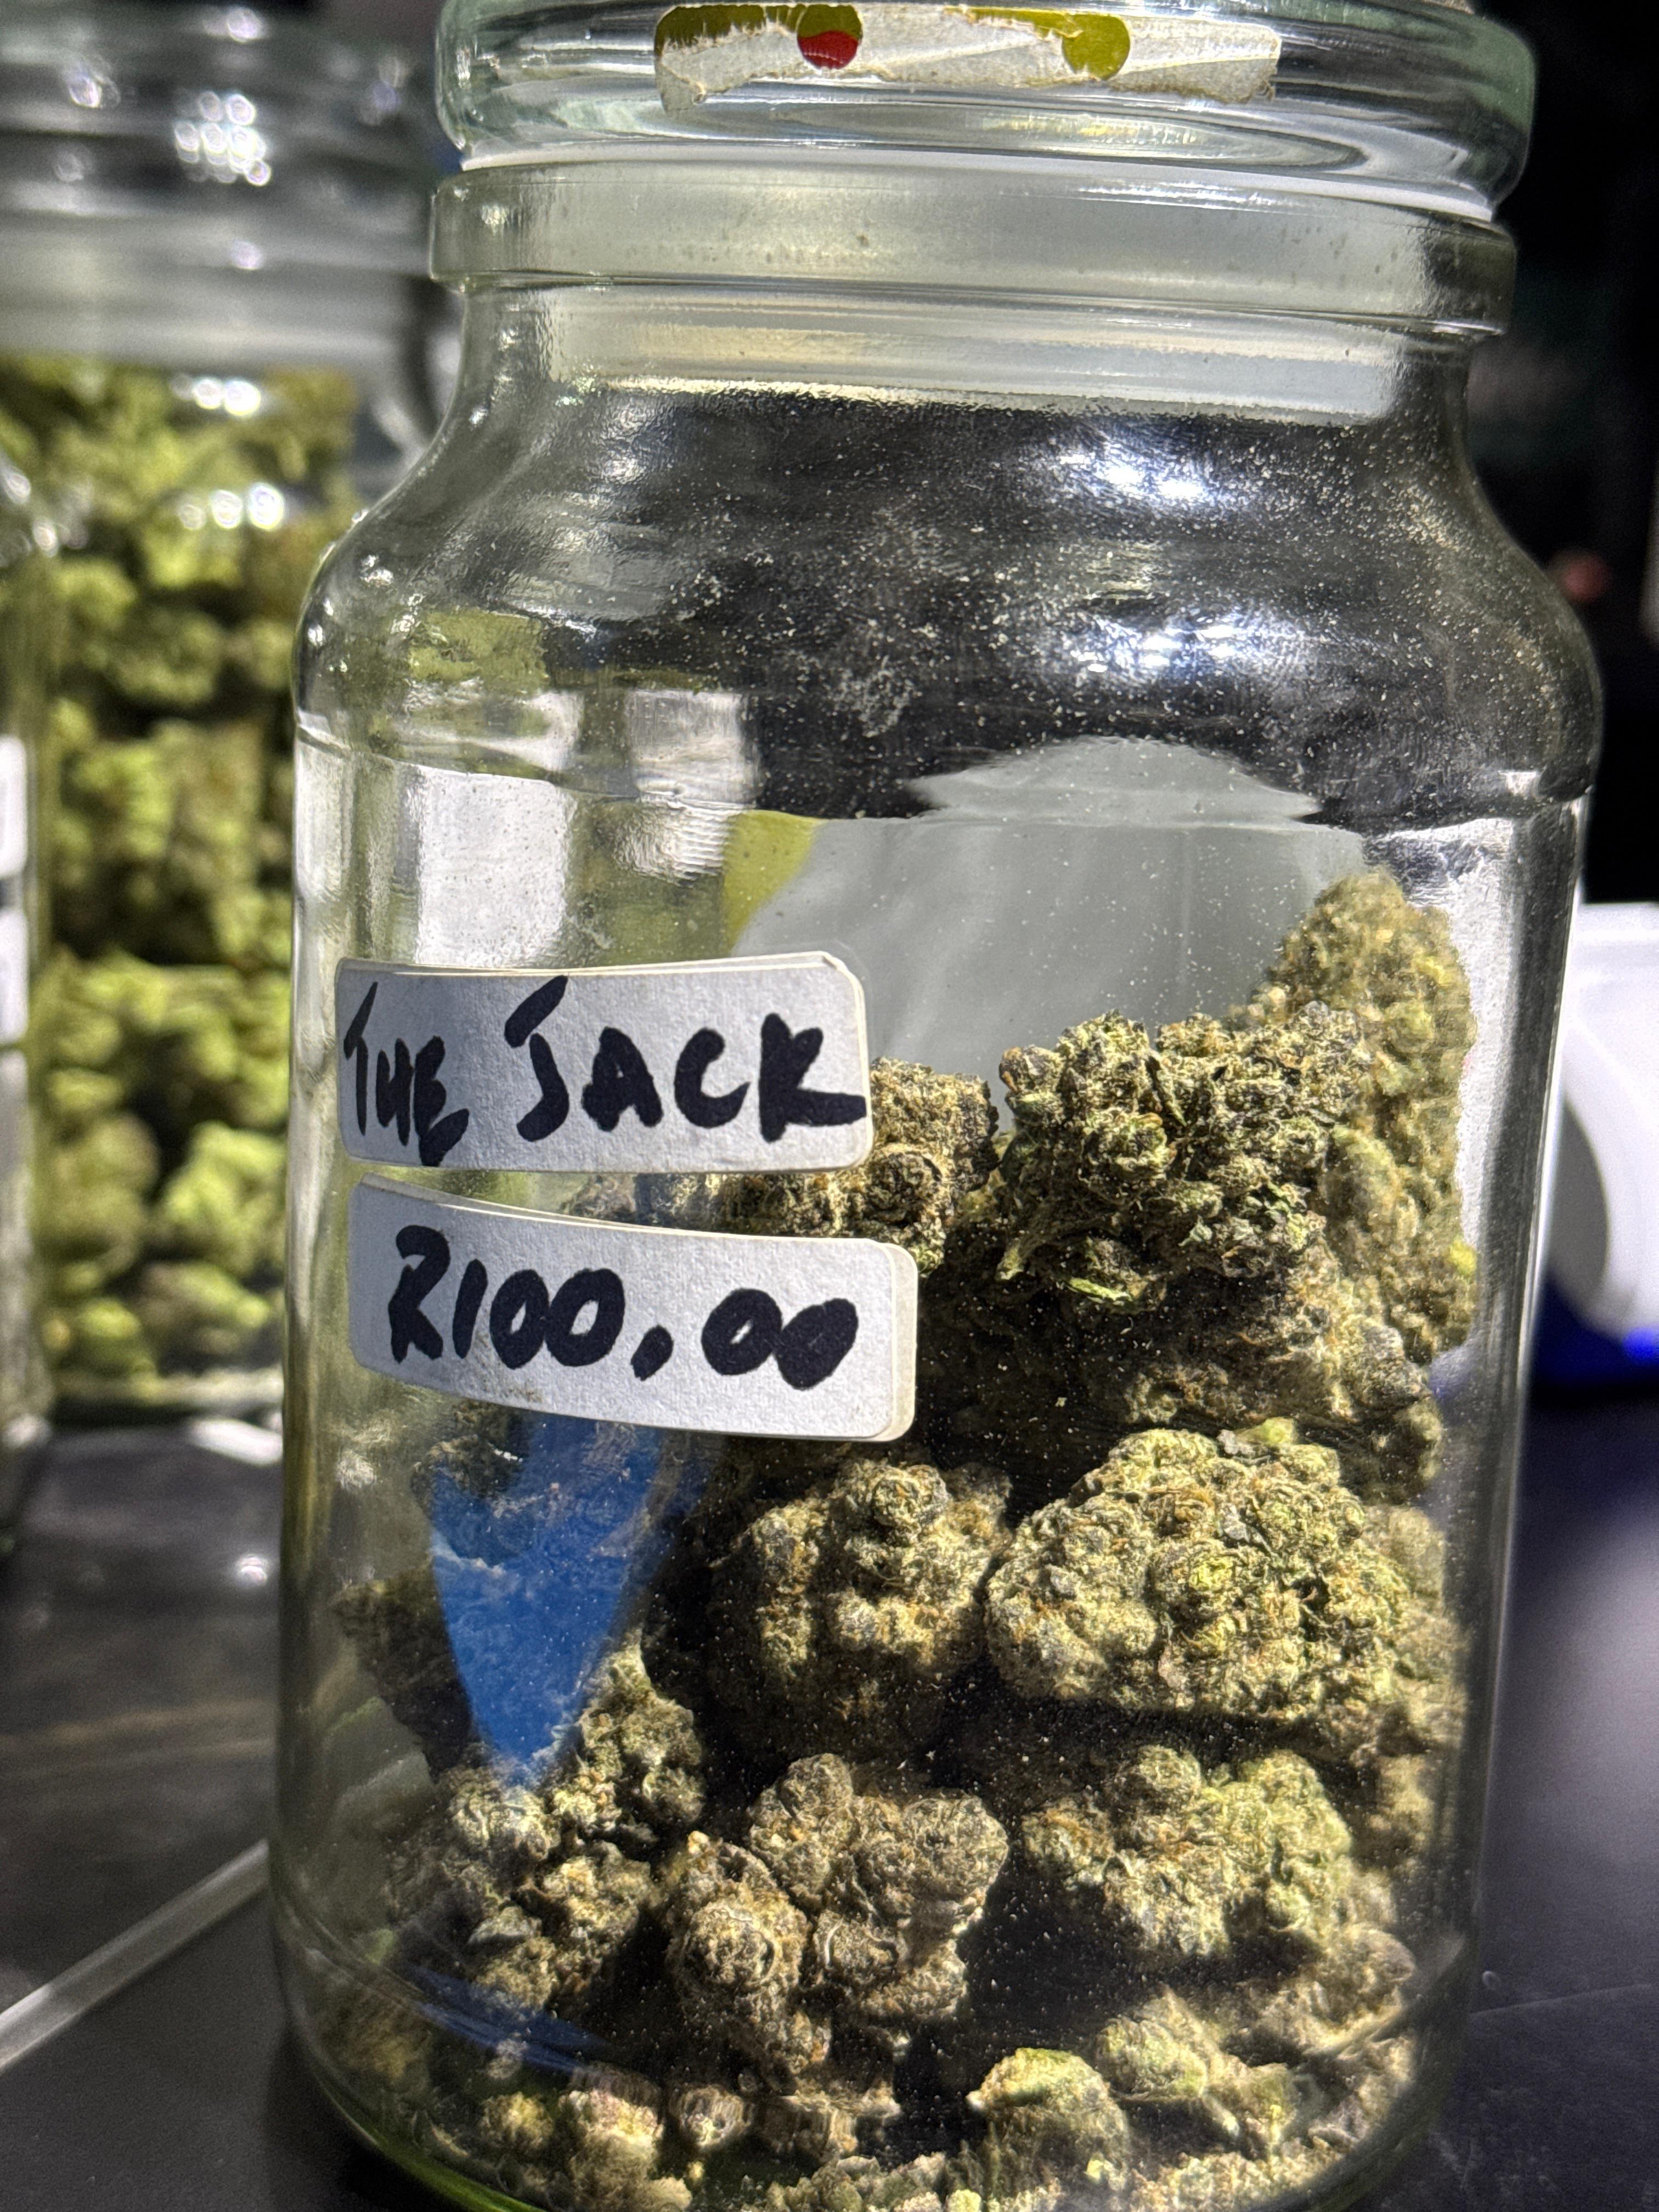 THE JACK
R100.00